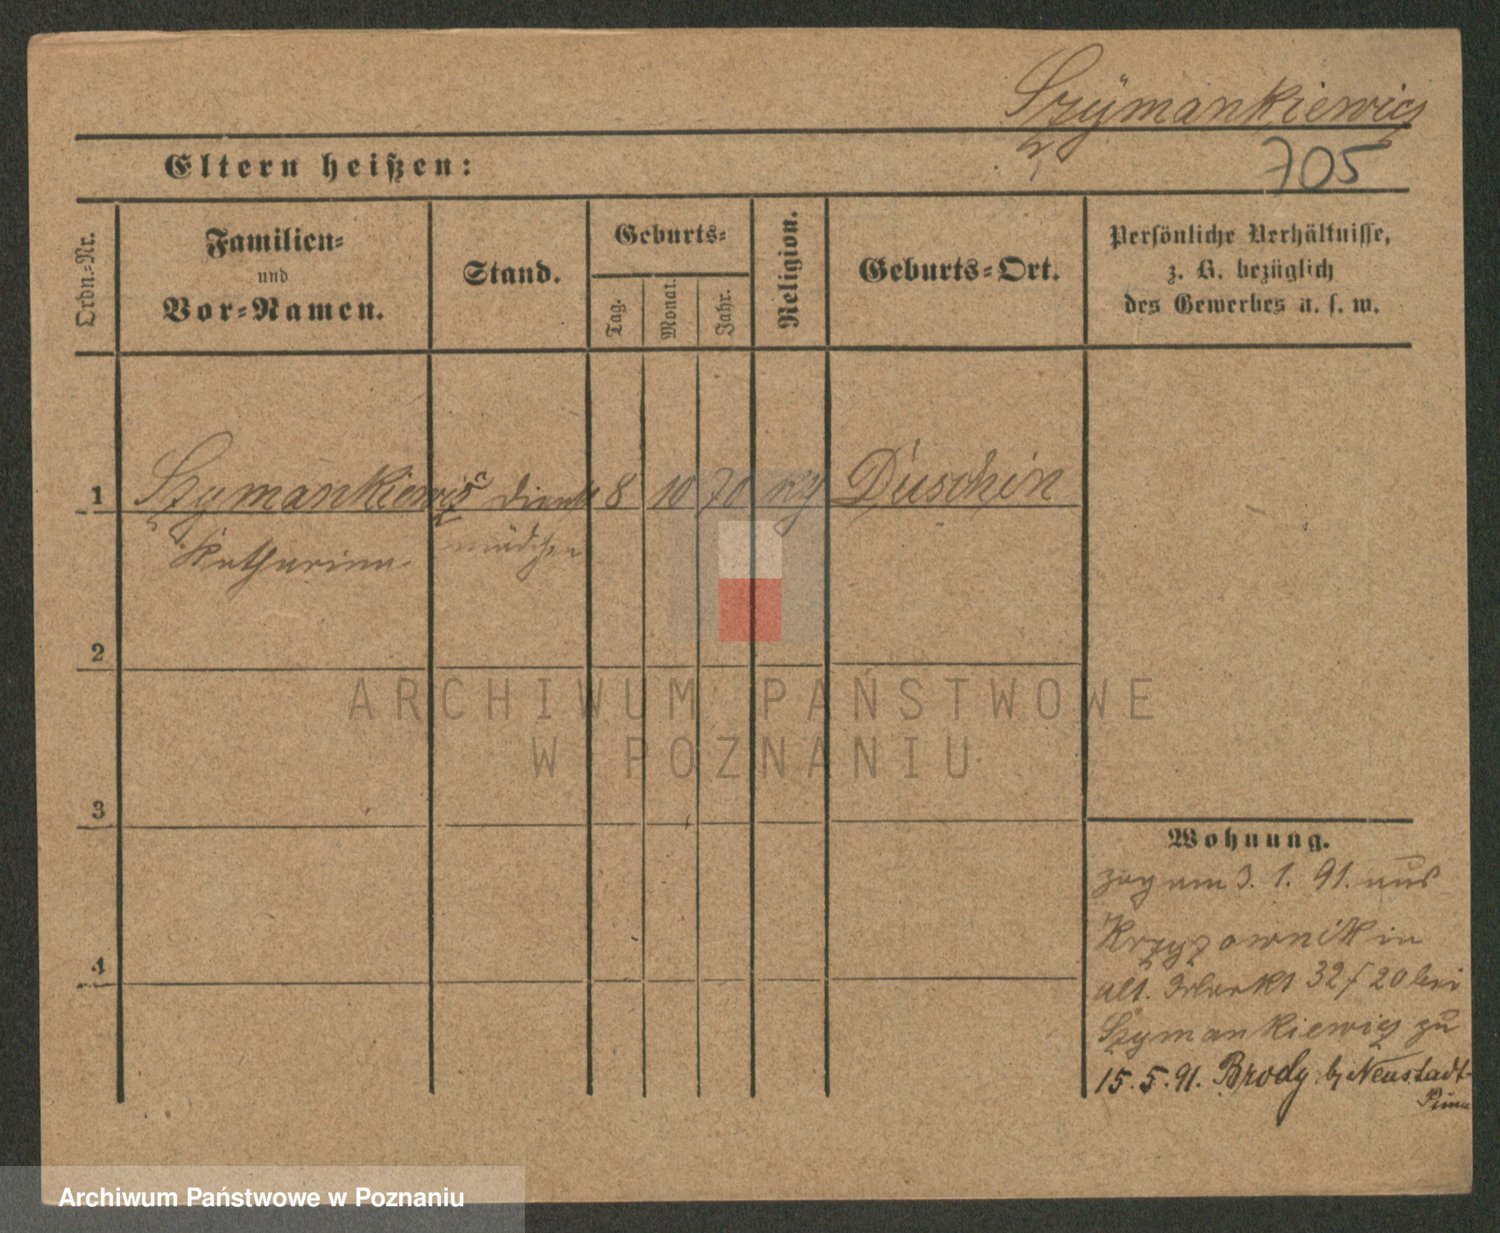 Szymankiewicz
705
Eltern heißen:
Ordn.-Nr.
Familien-
und
Vor-Namen.
Stand.
Geburts-
Tag.
Monat.
Jahr.
Religion.
Geburts-Ort.
Persönliche Verhältnisse,
z. B. bezüglich
des Gewerbes u. s. w.
1 Szymankiewicz Dienst 8 10 70 Duschin
Katharina mädchen
2
3
4
ARCHIWUM PAŃSTWOWE
W POZNANIU
Wohnung.
zugum 3. 1. 91. aus
Krzyzownik in
Alt. Markt 32/20 bei
Szymankiewicz zu
15. 5. 91. Brody b. Neustadt-
Pinne
Archiwum Państwowe w Poznaniu